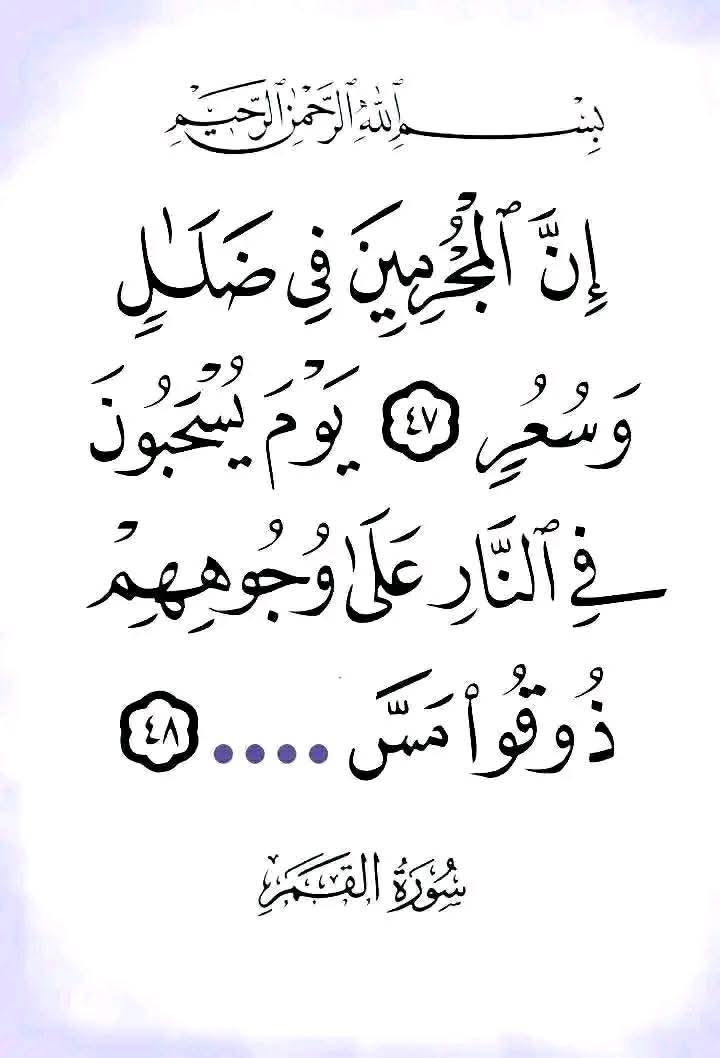 بِسْمِ ٱللَّهِ ٱلرَّحْمَٰنِ ٱلرَّحِيمِ
إِنَّ ٱلْمُجْرِمِينَ فِى ضَلَٰلٍ
وَسُعُرٍ ٤٧ يَوْمَ يُسْحَبُونَ
فِى ٱلنَّارِ عَلَىٰ وُجُوهِهِمْ
ذُوقُوا۟ مَسَّ .... ٤٨
سُورَةُ القَمَرِ